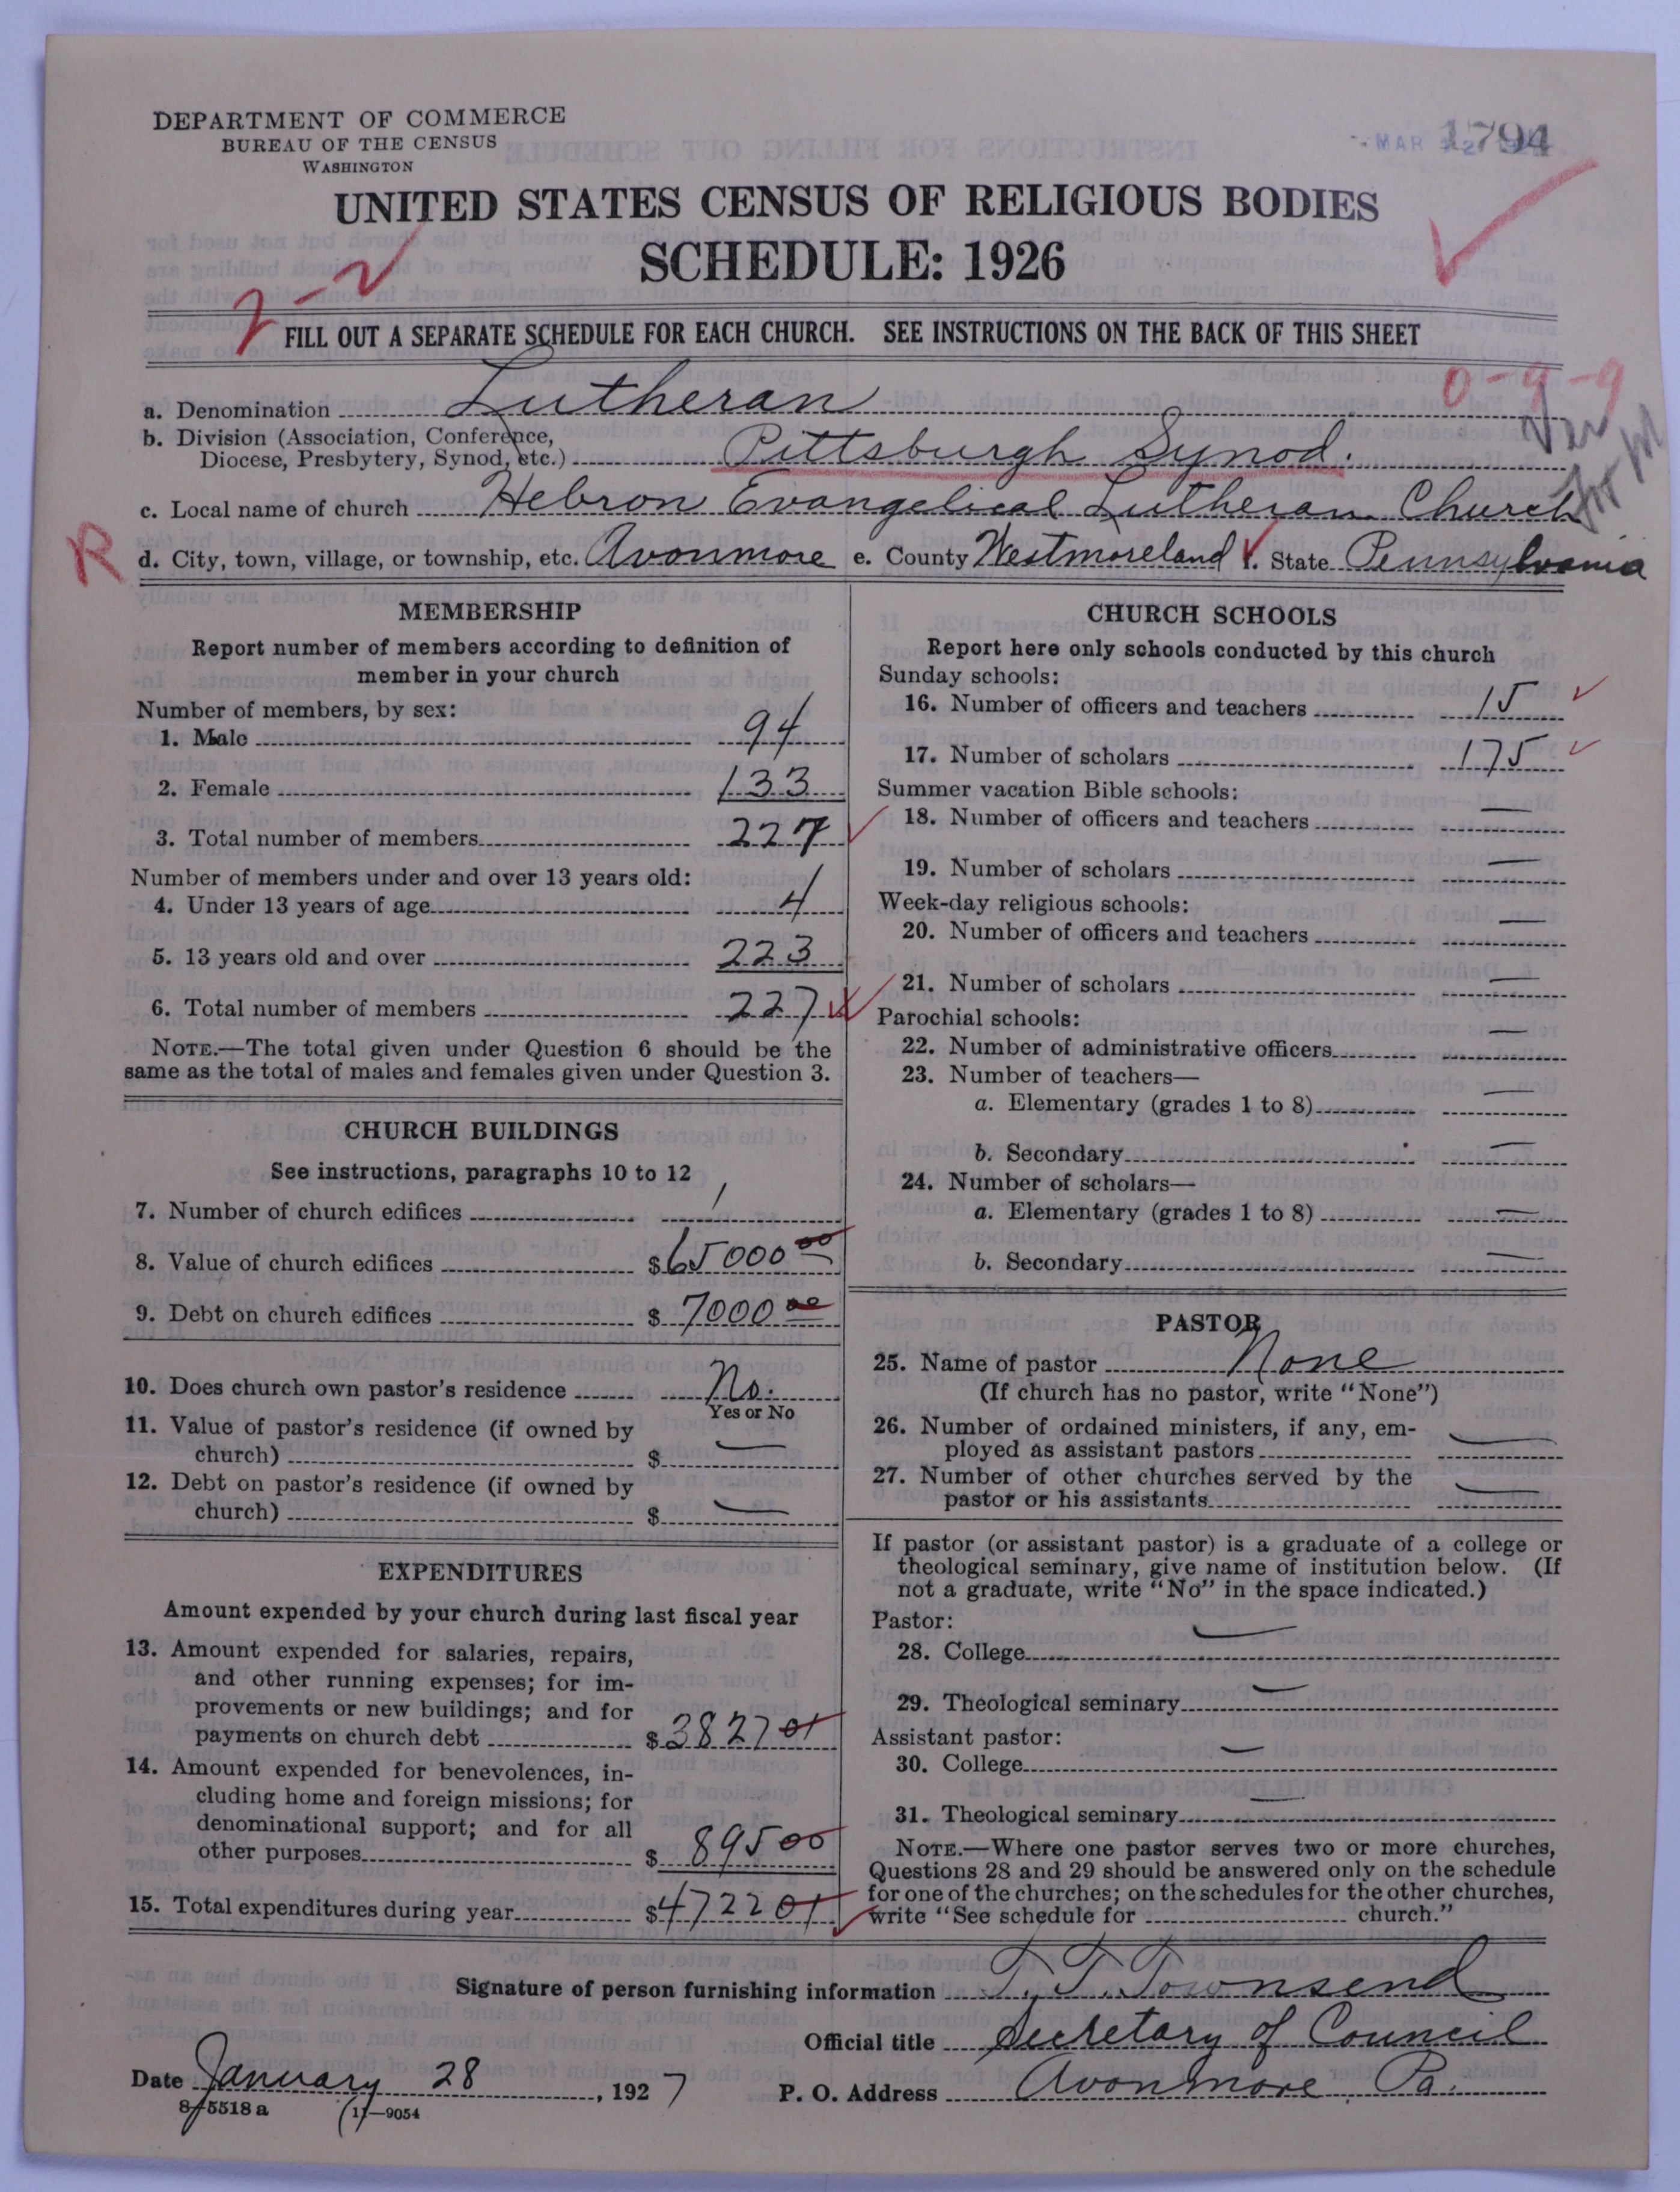 DEPARTMENT OF COMMERCE
BUREAU OF THE CENSUS
WASHINGTON
MAR 1794
UNITED STATES CENSUS OF RELIGIOUS BODIES
SCHEDULE: 1926
2-2
FILL OUT A SEPARATE SCHEDULE FOR EACH CHURCH. SEE INSTRUCTIONS ON THE BACK OF THIS SHEET
0-9-9
a. Denomination Lutheran
b. Division (Association, Conference,
Diocese, Presbytery, Synod, etc.) Pittsburgh Synod.
c. Local name of church Hebron Evangelical Lutheran Church
R
d. City, town, village, or township, etc. Avonmore e. County Westmoreland f. State Pennsylvania
MEMBERSHIP
Report number of members according to definition of
member in your church
Number of members, by sex:
1. Male 94
2. Female 133
3. Total number of members 227
Number of members under and over 13 years old:
4. Under 13 years of age 4
5. 13 years old and over 223
6. Total number of members 227
NOTE.—The total given under Question 6 should be the
same as the total of males and females given under Question 3.
CHURCH BUILDINGS
See instructions, paragraphs 10 to 12
7. Number of church edifices 1
8. Value of church edifices $65000 00
9. Debt on church edifices $7000 00
10. Does church own pastor's residence No.
Yes or No
11. Value of pastor's residence (if owned by
church) $ —
12. Debt on pastor's residence (if owned by
church) $ —
EXPENDITURES
Amount expended by your church during last fiscal year
13. Amount expended for salaries, repairs,
and other running expenses; for im-
provements or new buildings; and for
payments on church debt $3827 01
14. Amount expended for benevolences, in-
cluding home and foreign missions; for
denominational support; and for all
other purposes $895 00
15. Total expenditures during year $4722 01
CHURCH SCHOOLS
Report here only schools conducted by this church
Sunday schools:
16. Number of officers and teachers 15
17. Number of scholars 175
Summer vacation Bible schools:
18. Number of officers and teachers —
19. Number of scholars —
Week-day religious schools:
20. Number of officers and teachers —
21. Number of scholars —
Parochial schools:
22. Number of administrative officers —
23. Number of teachers—
a. Elementary (grades 1 to 8) —
b. Secondary —
24. Number of scholars—
a. Elementary (grades 1 to 8) —
b. Secondary —
PASTOR
25. Name of pastor None
(If church has no pastor, write "None")
26. Number of ordained ministers, if any, em-
ployed as assistant pastors —
27. Number of other churches served by the
pastor or his assistants —
If pastor (or assistant pastor) is a graduate of a college or
theological seminary, give name of institution below. (If
not a graduate, write "No" in the space indicated.)
Pastor:
28. College —
29. Theological seminary —
Assistant pastor:
30. College —
31. Theological seminary —
NOTE.—Where one pastor serves two or more churches,
Questions 28 and 29 should be answered only on the schedule
for one of the churches; on the schedules for the other churches,
write "See schedule for church."
Signature of person furnishing information T. T. Townsend
Official title Secretary of Council
Date January 28, 1927 P. O. Address Avonmore Pa.
8-5518 a 11-9054